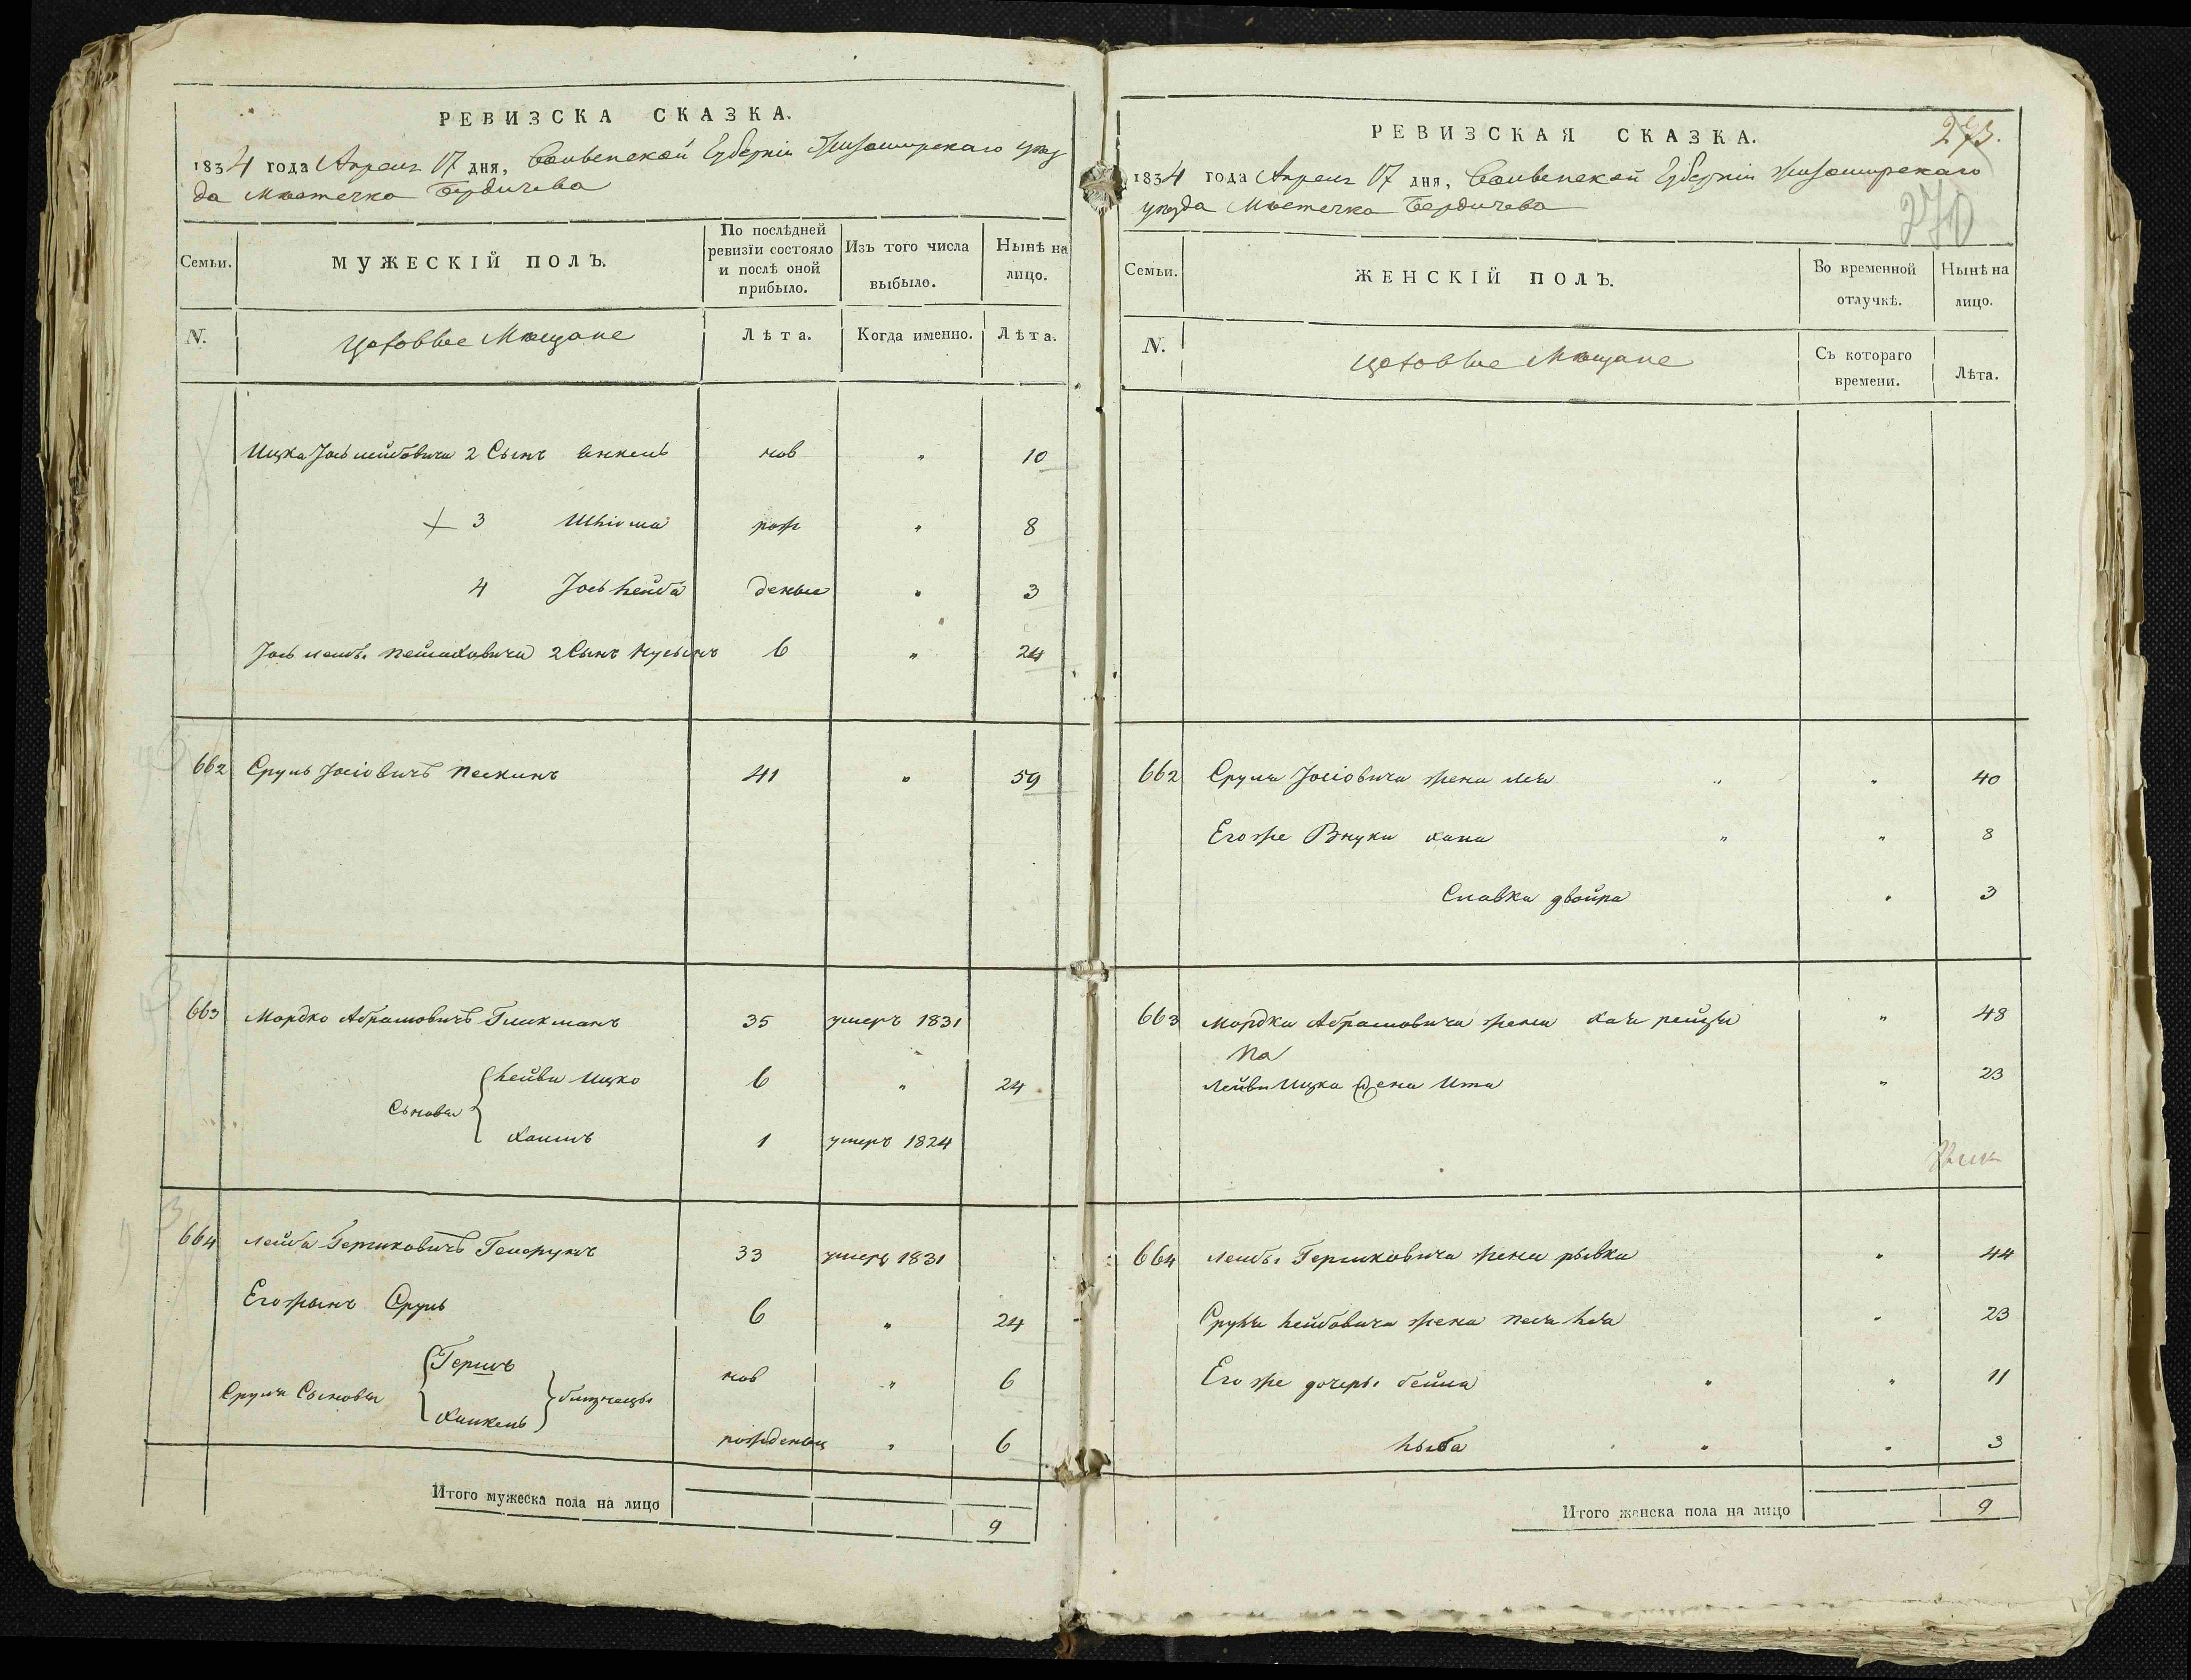 РЕВИЗСКА СКАЗКА.
1834 года Апреля 17 дня, Волынской Губернiи Житомирскаго уѣз
да Мѣстечка Бердичева
Семьи.
МУЖЕСКIЙ ПОЛЪ.
По послѣдней
ревизiи состояло
и послѣ оной
прибыло.
Изъ того числа
выбыло.
Нынѣ на
лицо.
N.
Цеховые Мѣщане
Лѣта.
Когда именно.
Лѣта.
Ицка Iось лейбовича 2 Сынъ Янкель нов " 10
3 Шлiома рож " 8
4 Iось Лейба деные " 3
Iось лейбы Пейсаховича 2 Сынъ Нусынъ 6 " 24
662 Сруль Iосiовичъ Пескинъ 41 " 59
663 Мордко Абрамовичъ Гликманъ 35 умеръ 1831
Лейви Ицко 6 " 24
Сыновья
Хаимъ 1 умеръ 1824
664 Лейба Гершковичъ 33 умеръ 1831
Его Сынъ Сруль 6 " 24
Гершъ нов " 6
Сруля Сыновья близнецы
Хаикель рожденыи " 6
Итого мужеска пола на лицо
9
РЕВИЗСКАЯ СКАЗКА.
273.
270
1834 года Апреля 17 дня, Волынской Губернiи Житомирскаго
уѣзда Мѣстечка Бердичева
Семьи.
ЖЕНСКIЙ ПОЛЪ.
Во временной
отлучкѣ.
Нынѣ на
лицо.
N.
Цеховые Мѣщане
Съ котораго
времени.
Лѣта.
662 Сруля Iосiовича жена Лея " " 40
Его же Внуки Хана " " 8
Славка двойра " 3
663 Мордки Абрамовича жена Хая рейзя " 48
Лейви Ицка жена Ита " 23
664 Лейбы Гершковича жена рывка " 44
Сруля Лейбовича жена Песя Лея " 23
Его же дочеры бейла " " 11
Лыба " " 3
Итого женска пола на лицо
9